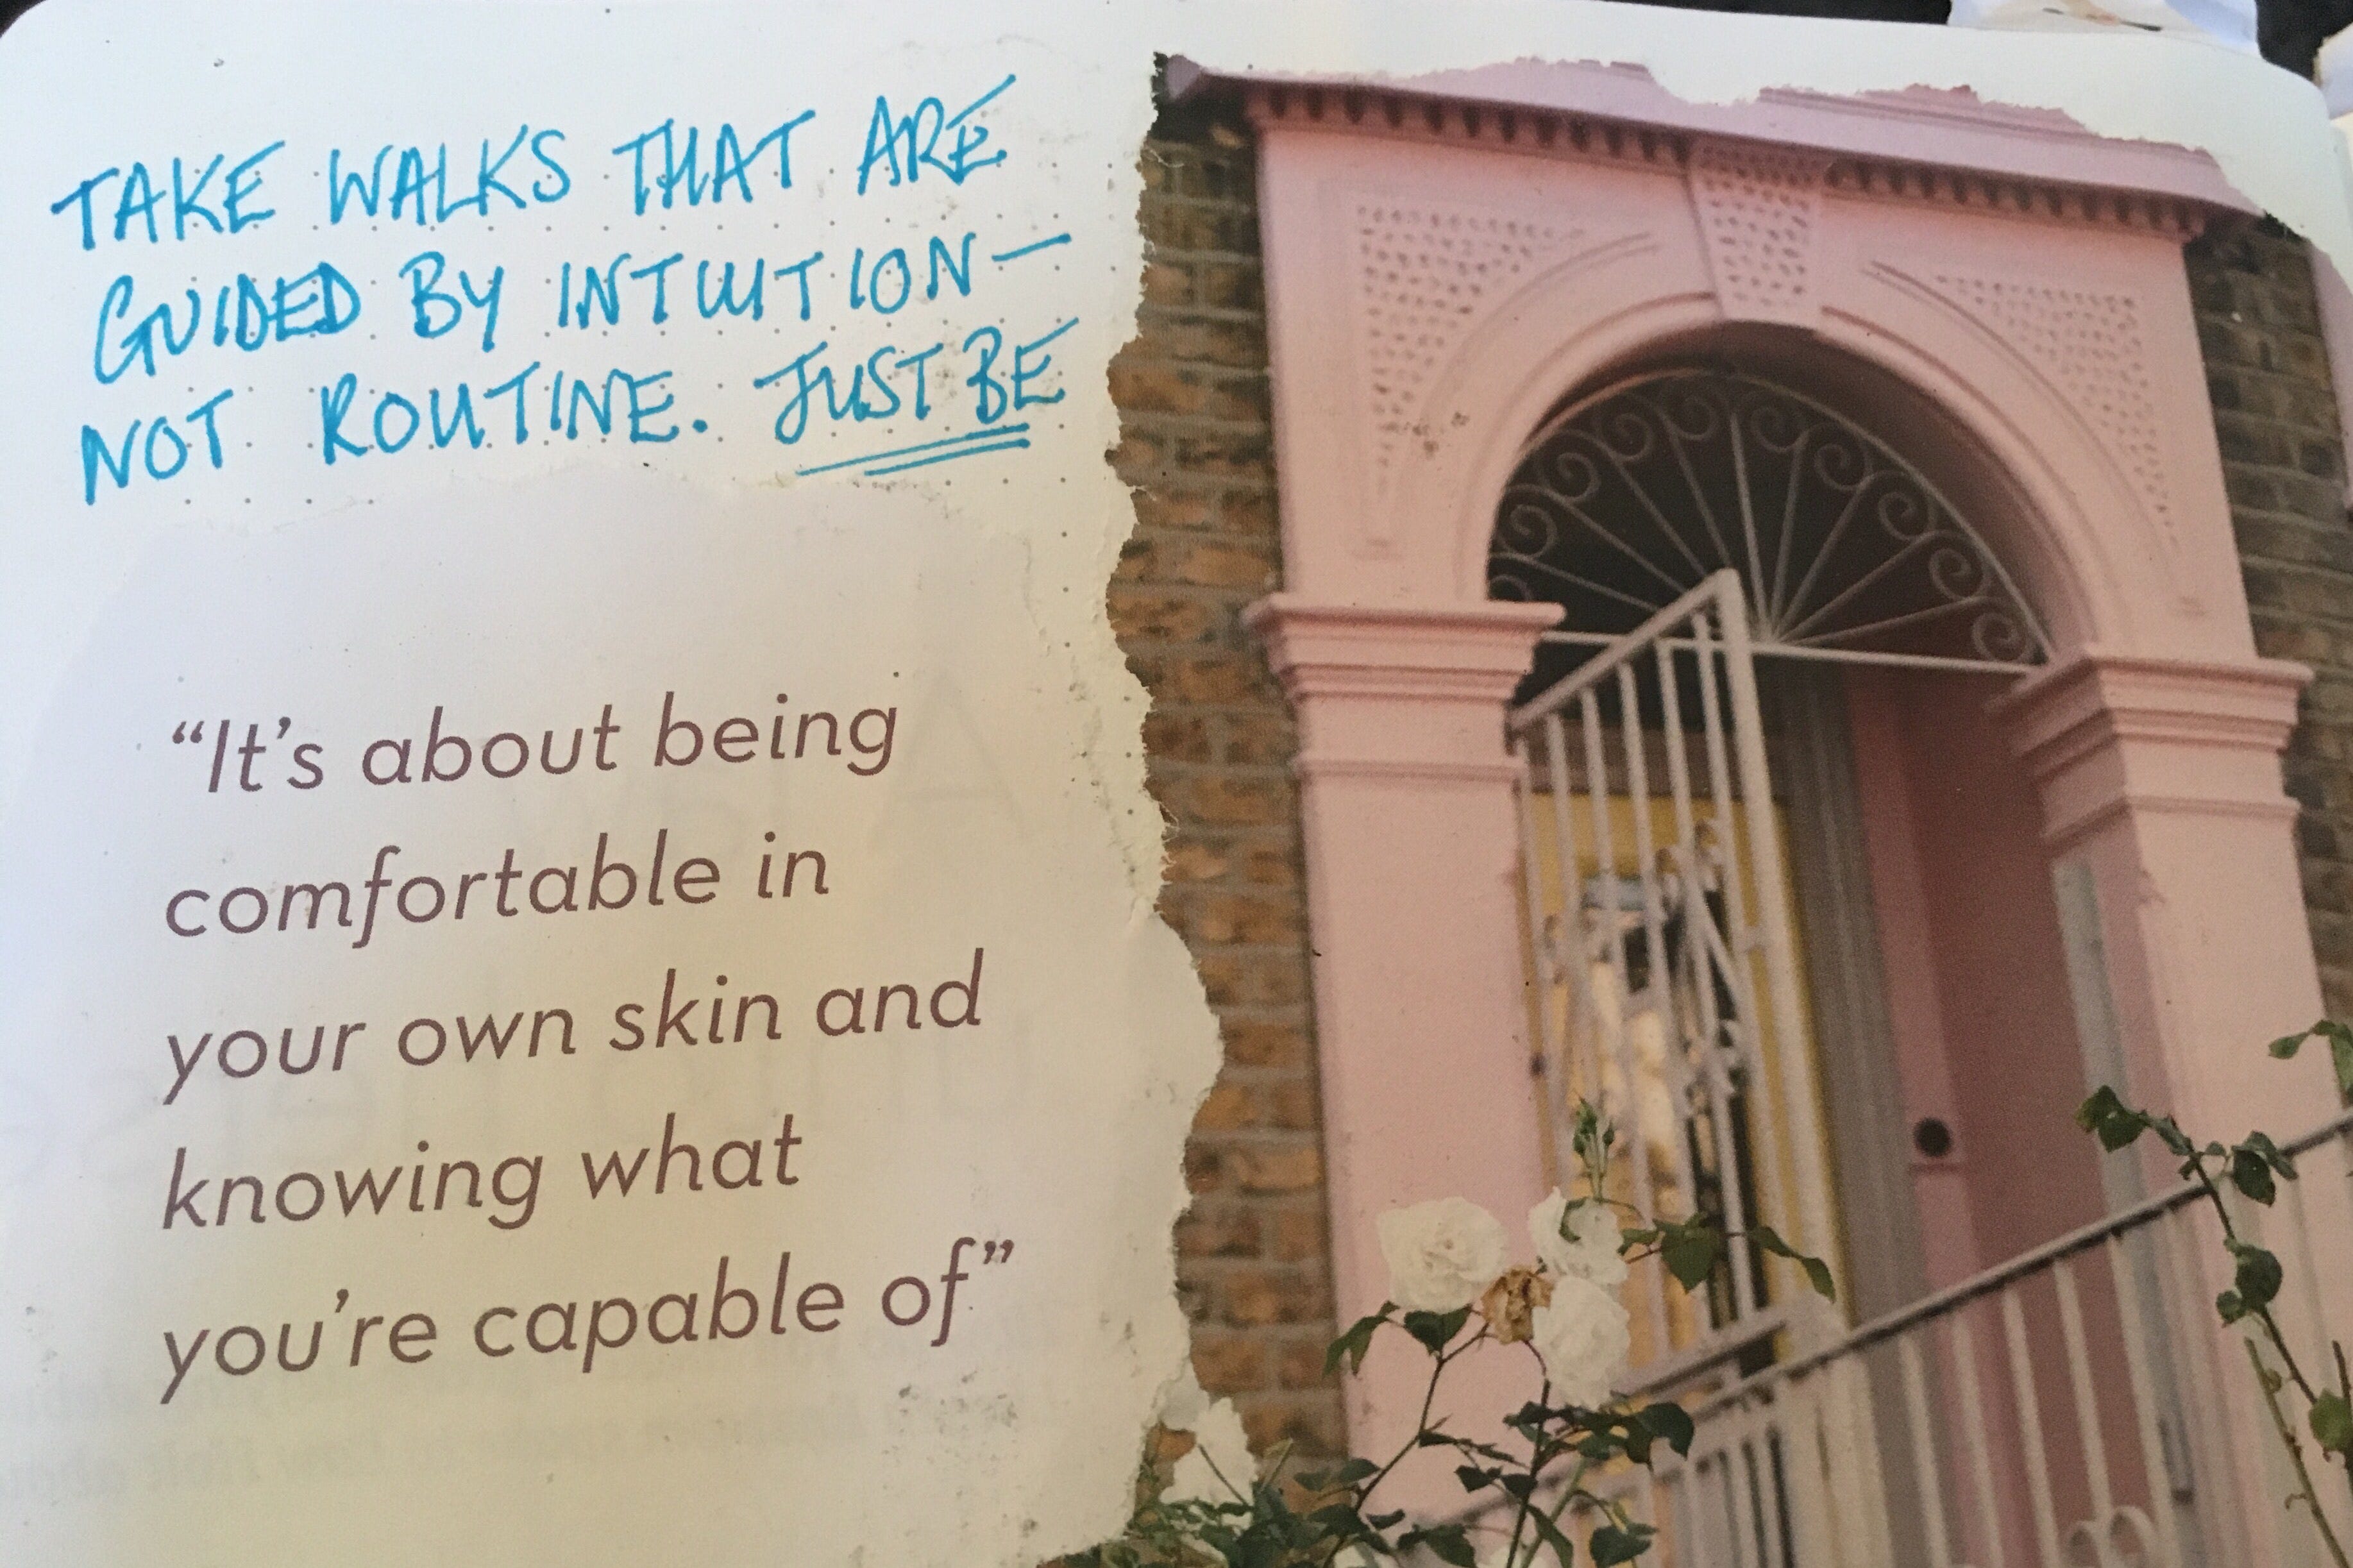 TAKE WALKS THAT ARE
GUIDED BY INTUITION—
NOT ROUTINE. JUST BE
“It’s about being
comfortable in
your own skin and
knowing what
you’re capable of”